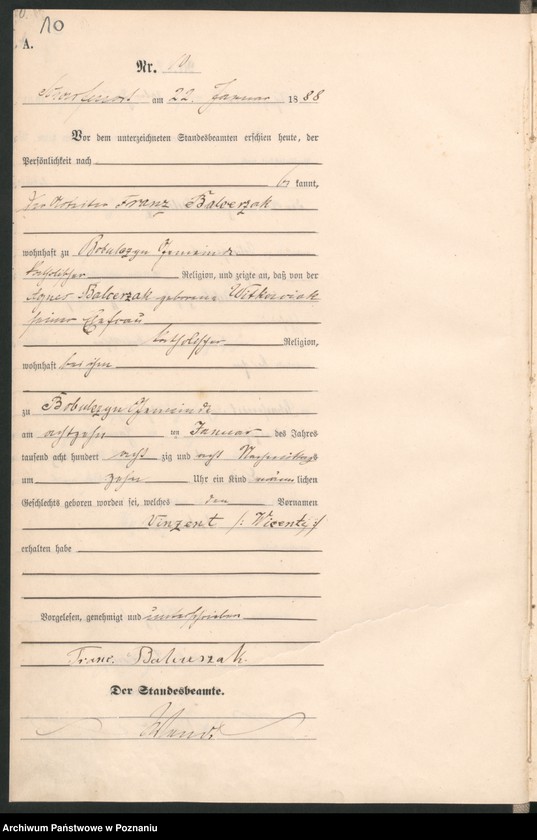 10
A.
Nr. 10
am 22. Januar 1888
Vor dem unterzeichneten Standesbeamten erschien heute, der
Persönlichkeit nach
be kannt,
der Arbeiter Franz Balcerzak
wohnhaft zu Bobulczyn Gemeinde
katholischer Religion, und zeigte an, daß von der
Agnes Balcerzak geborene Witkowiak
seiner Ehefrau
katholischer Religion,
wohnhaft bei ihm
zu Bobulczyn Gemeinde
am achtzehn ten Januar des Jahres
tausend acht hundert acht zig und acht Nachmittags
um zehn Uhr ein Kind männ lichen
Geschlechts geboren worden sei, welches den Vornamen
Vinzent /: Wicenty :/
erhalten habe
Vorgelesen, genehmigt und unterschrieben
Franc. Balcerzak
Der Standesbeamte.
Archiwum Państwowe w Poznaniu